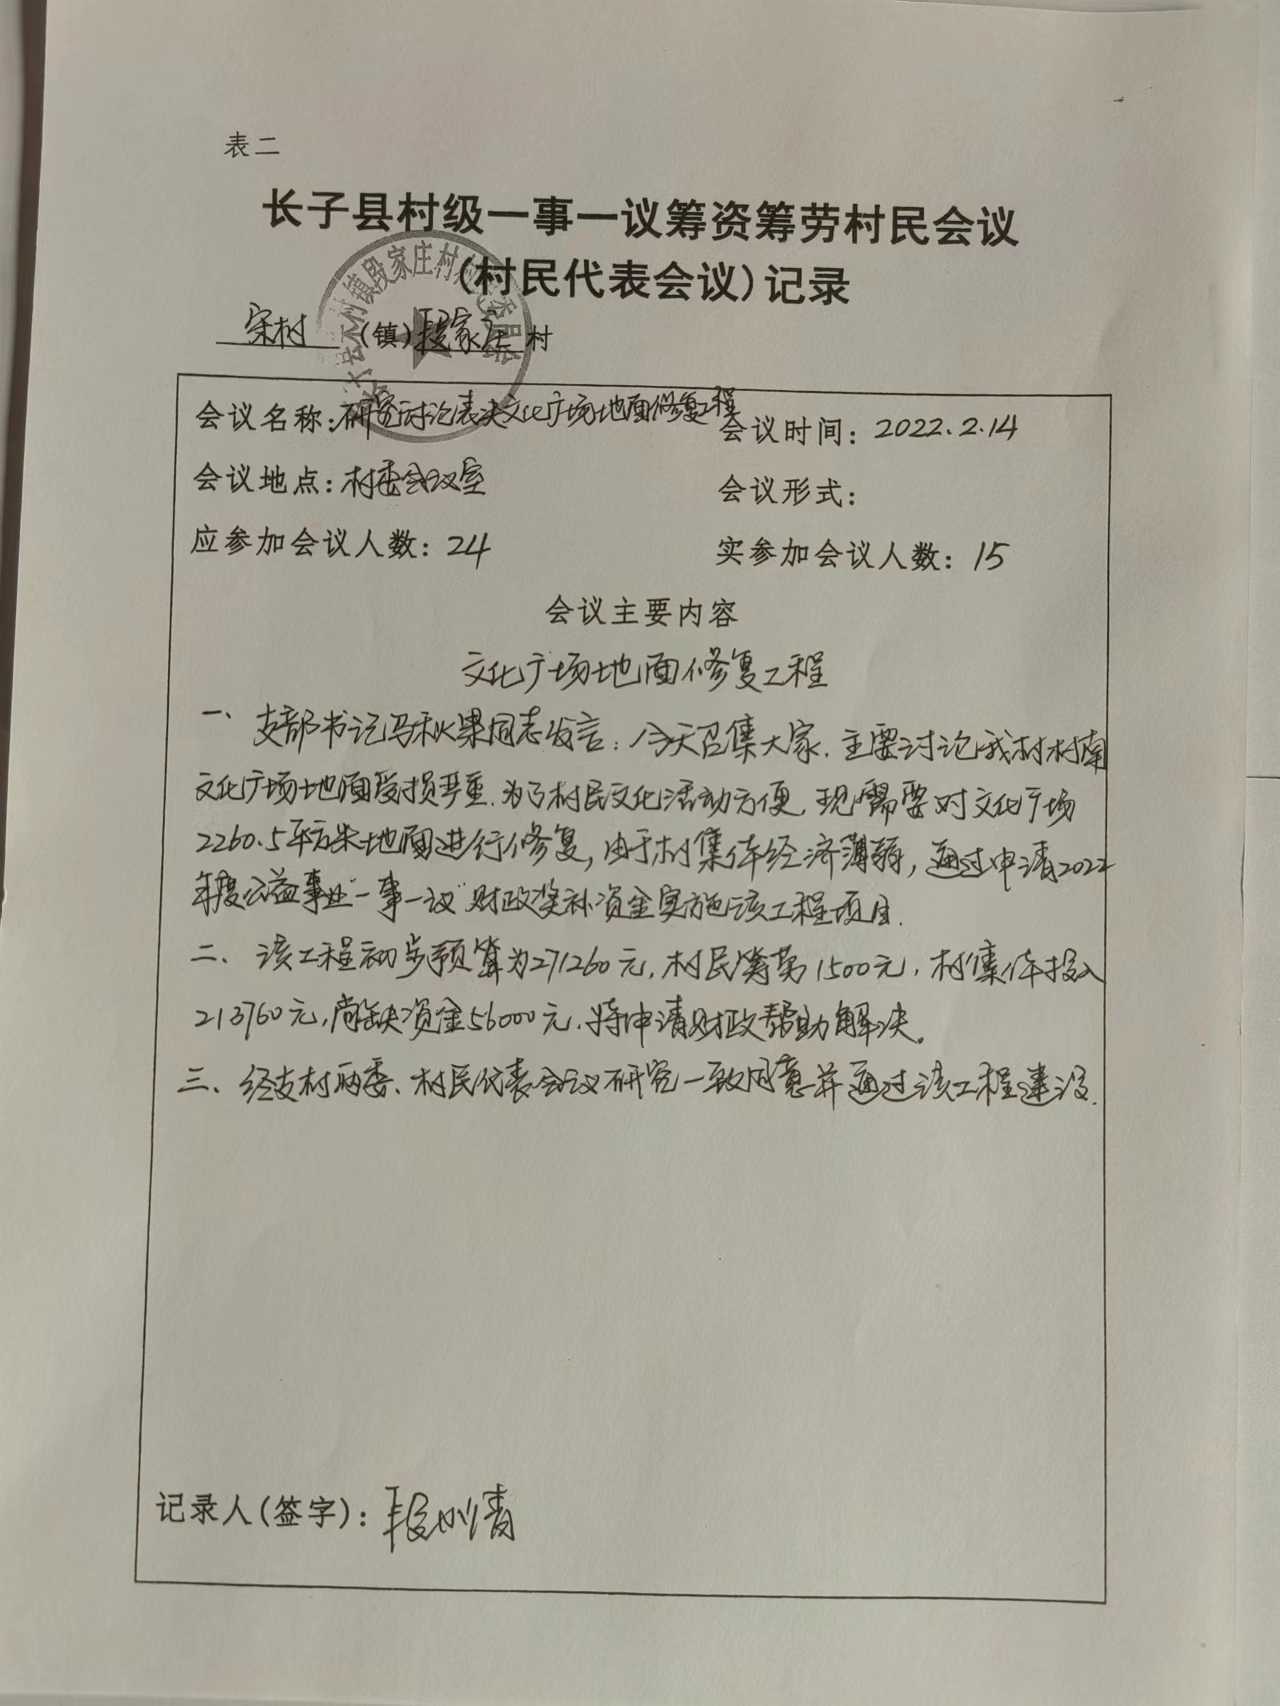 表二
长子县村级一事一议筹资筹劳村民会议
(村民代表会议)记录
宋村(镇)段家庄村
会议名称:研究讨论表决文化广场地面修复工程 会议时间:2022.2.14
会议地点:村委会议室 会议形式:
应参加会议人数:24 实参加会议人数:15
会议主要内容
文化广场地面修复工程
一、支部书记马秋果同志发言:今天召集大家,主要讨论我村村南
文化广场地面受损严重,为了村民文化活动方便,现需要对文化广场
2260.5平方米地面进行修复,由于村集体经济薄弱,通过申请2022
年度公益事业"一事一议"财政奖补资金实施该工程项目.
二、该工程初步预算为271260元,村民筹劳1500元,村集体投入
213760元,尚缺资金56000元,特申请财政帮助解决。
三、经支村两委、村民代表会议研究一致同意并通过该工程建设.
记录人(签字):段